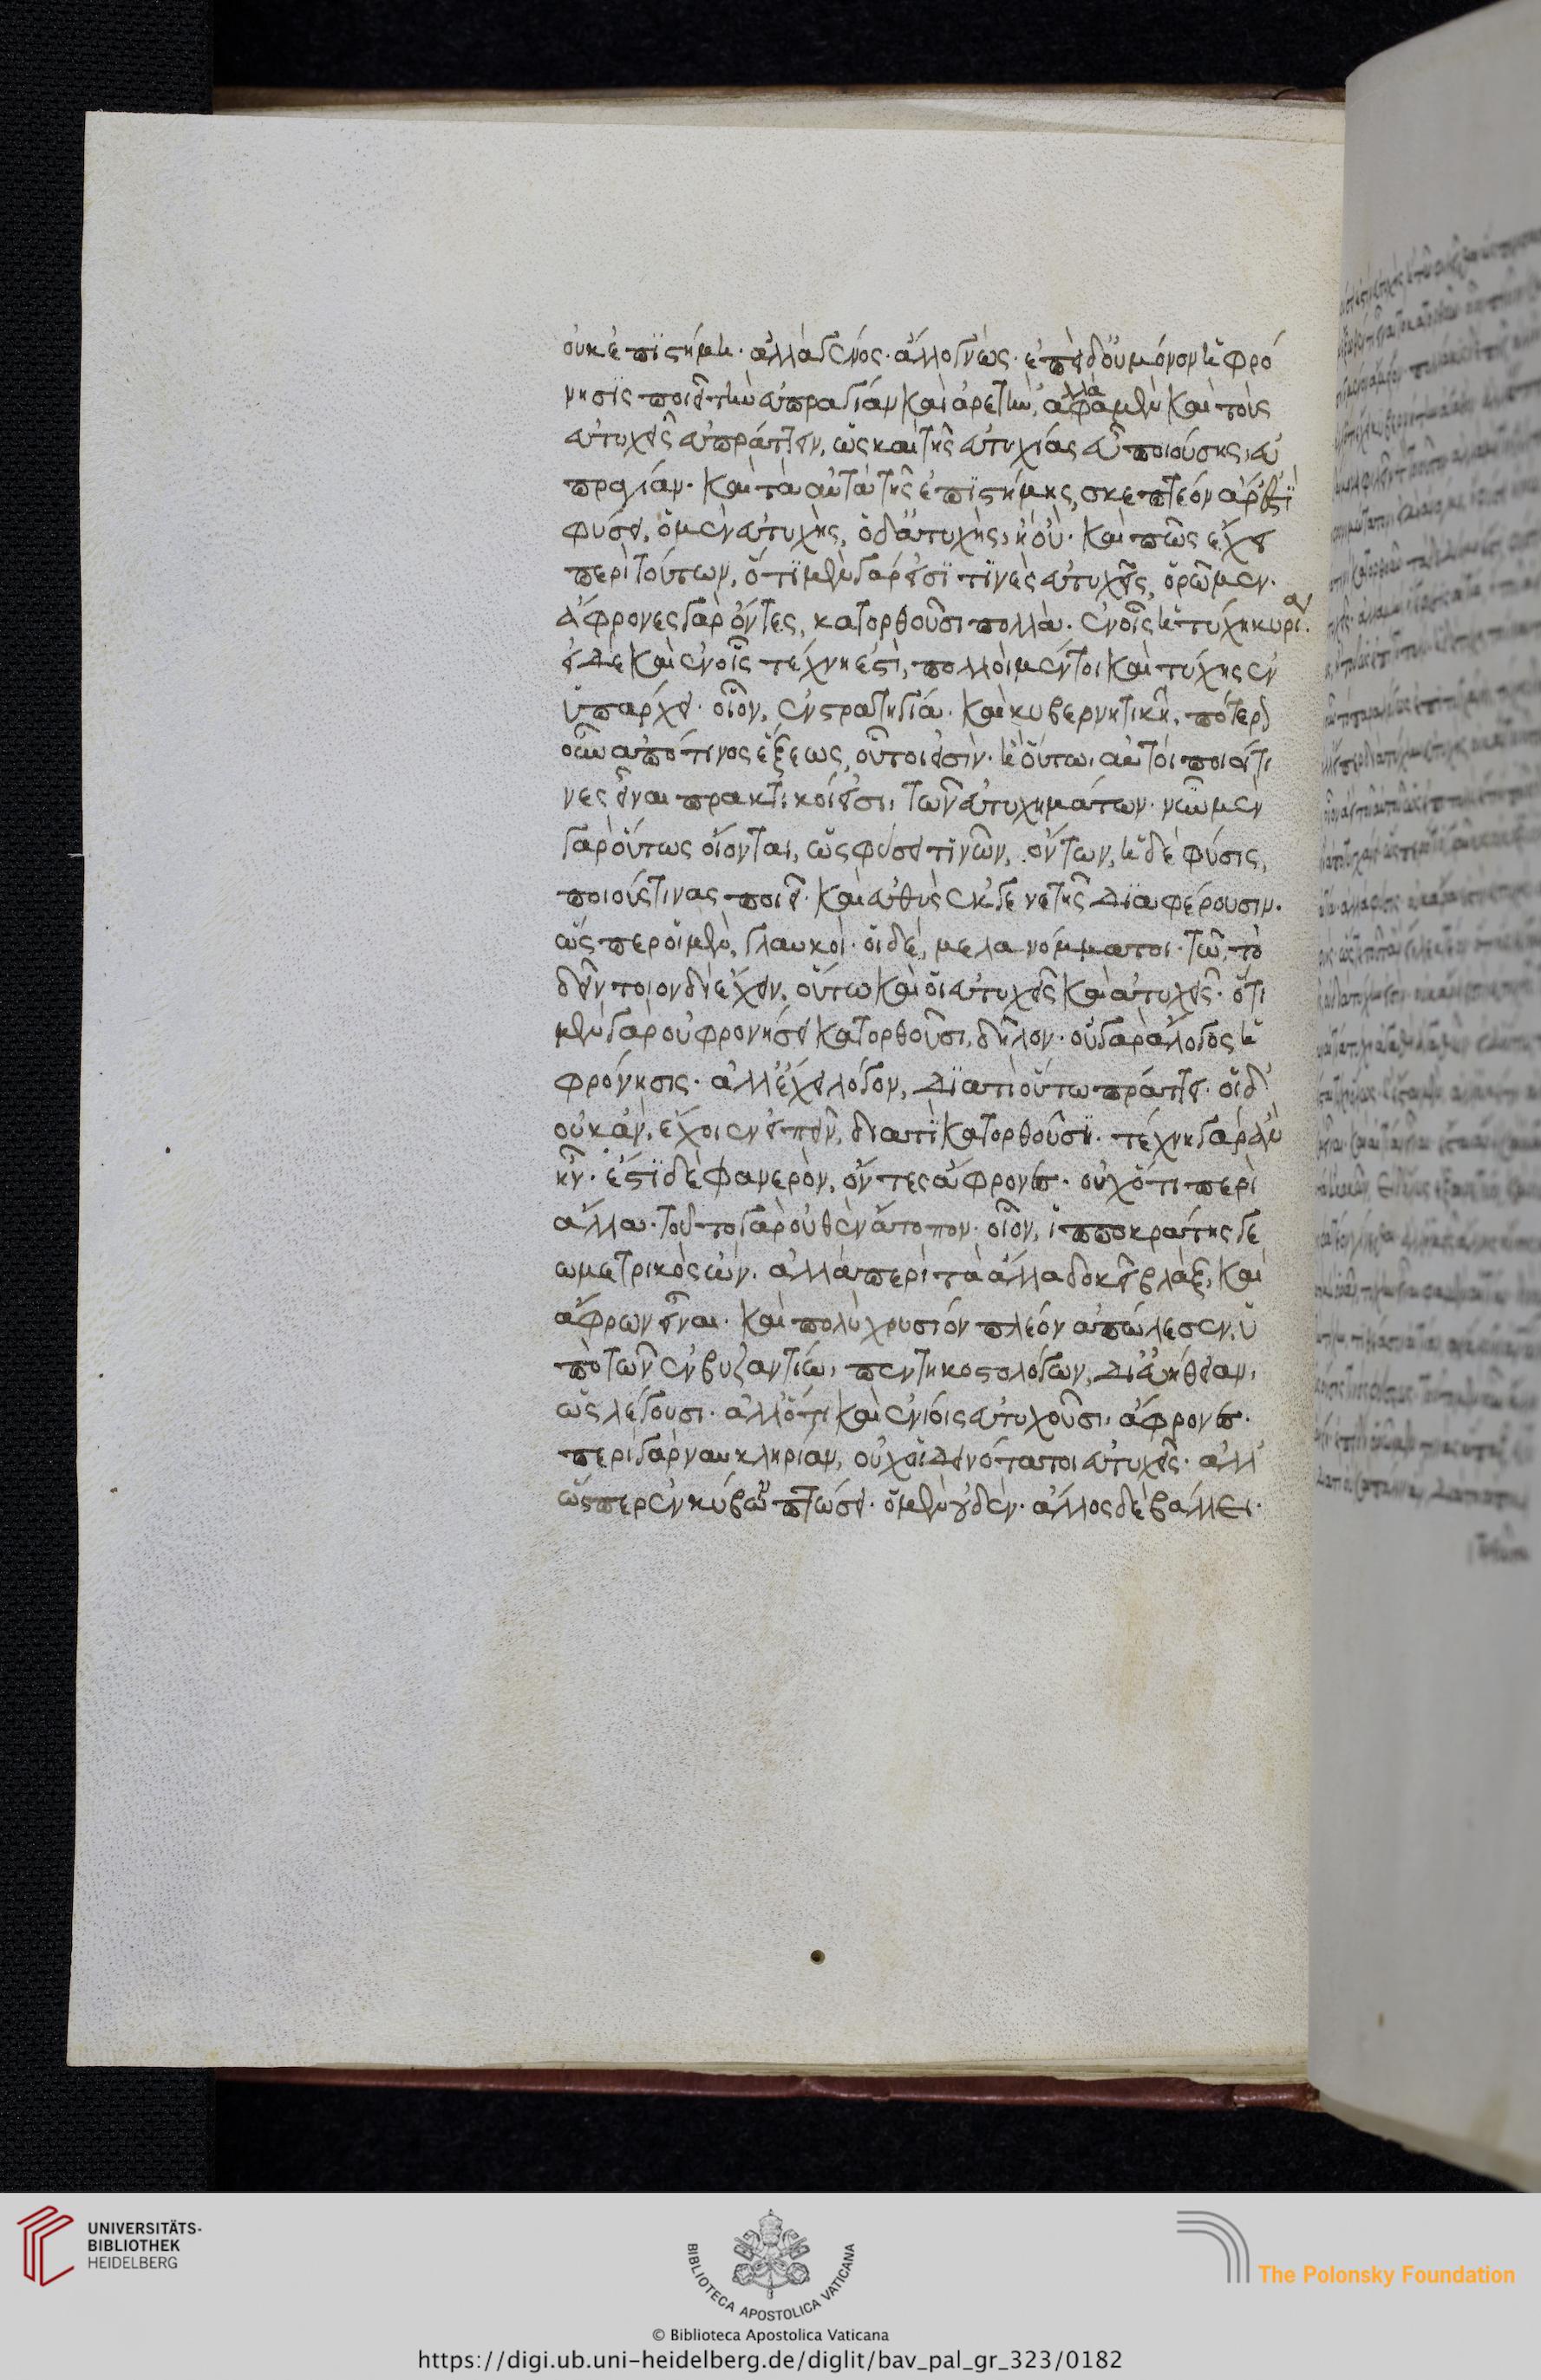 οὐκ ἐπϊστήμη· ἀλλὰ γένος· ἄλλο γνώς· ἐπεὶ δ' οὐ μόνον ἡ φρό
νησϊς ποιεῖ τὴν εὐπραγίαν καὶ ἀρετὴν, ἀλλὰ φαμὲν καὶ τοὺς
εὐτυχεῖς εὐπράττειν, ὡς καὶ τῆς εὐτυχίας εὖ ποιούσης, εὐ
πραγίαν· καὶ τὰ αὐτὰ τῆς ἐπϊστήμης, σκεπτέον ἆρ' ἐστϊ
φύσει, ὁ μὲν εὐτυχὴς, ὁ δ' ἀτυχὴς, ἢ οὐ· καὶ πῶς ἔχει
περὶ τούτων, ὅτϊ μὲν γάρ εἰσϊ τϊνὲς εὐτυχεῖς, ὁρῶμεν·
ἄφρονες γὰρ ὄντες, κατορθοῦσι πολλὰ· ἐν οἷς ἡ τύχη κυρία·
εἰ δὲ καὶ ἐν οἷς τέχνη ἐστὶ, πολλοὶ μέντοι καὶ τύχης ἐν
ὑπάρχει· οἷον, ἐν στρατηγία· καὶ κυβερνητικῆ, πότερον
οὖν ἀπό τινος ἕξεως, οὗτοι εἰσὶν· ἢ οὕτω, αὐτοὶ ποιοί τι
νες εἶναι πρακτικοί εἰσι, τῶν εὐτυχημάτων· νῦν μὲν
γὰρ οὕτως οἴονται, ὡς φύσει τϊνῶν, ὄντων, ἡ δὲ φύσις,
ποιούς τινας ποιεῖ· καὶ εὐθὺς ἐκ γενετῆς δϊαφέρουσιν·
ὥσπερ οἱ μὲν, γλαυκοὶ· οἱ δὲ, μελανόμματοι· τῶ, τὸ
δεῖν τοιονδὶ ἔχειν, οὕτω καὶ οἱ εὐτυχεῖς καὶ ἀτυχεῖς· ὅτι
μὲν γὰρ οὐ φρονήσει κατορθοῦσι, δῆλον· οὐ γὰρ ἄλογος ἡ
φρόνησις· ἀλλ' ἔχει λόγον, δϊατὶ οὕτω πράττει· οἱ δ'
οὐκ ἂν, ἔχοιεν εἰπεῖν, διατϊ κατορθοῦσϊ· τέχνη γὰρ ἂν
ἦν· ἔστϊ δὲ φανερὸν, ὄντες ἄφρονες· οὐχ ὅτι περὶ
ἄλλα· τοῦτο γὰρ οὐθὲν ἄτοπον· οἷον, ἱπποκράτης γε
ωμετρικὸς ὤν· ἀλλὰ περὶ τὰ ἄλλα δοκεῖ βλὰξ, καὶ
ἄφρων εἶναι· καὶ πολὺ χρυσίον πλέον ἀπώλεσεν, ὑ
πὸ τῶν ἐν βυζαντίω, πεντηκοστολόγων, δι' εὐήθειαν,
ὡς λέγουσι· ἀλλ' ὅτι καὶ ἐν οἷς εὐτυχοῦσι, ἄφρονες·
περὶ γὰρ ναυκληρίαν, οὐχ οἱ δεινότατοι εὐτυχεῖς· ἀλλ'
ὥσπερ ἐν κύβων πτώσει· ὁ μὲν οὐδὲν· ἄλλος δὲ βάλλει·
UNIVERSITÄTS-
BIBLIOTHEK
HEIDELBERG
BIBLIOTECA APOSTOLICA VATICANA
The Polonsky Foundation
© Biblioteca Apostolica Vaticana
https://digi.ub.uni-heidelberg.de/diglit/bav_pal_gr_323/0182